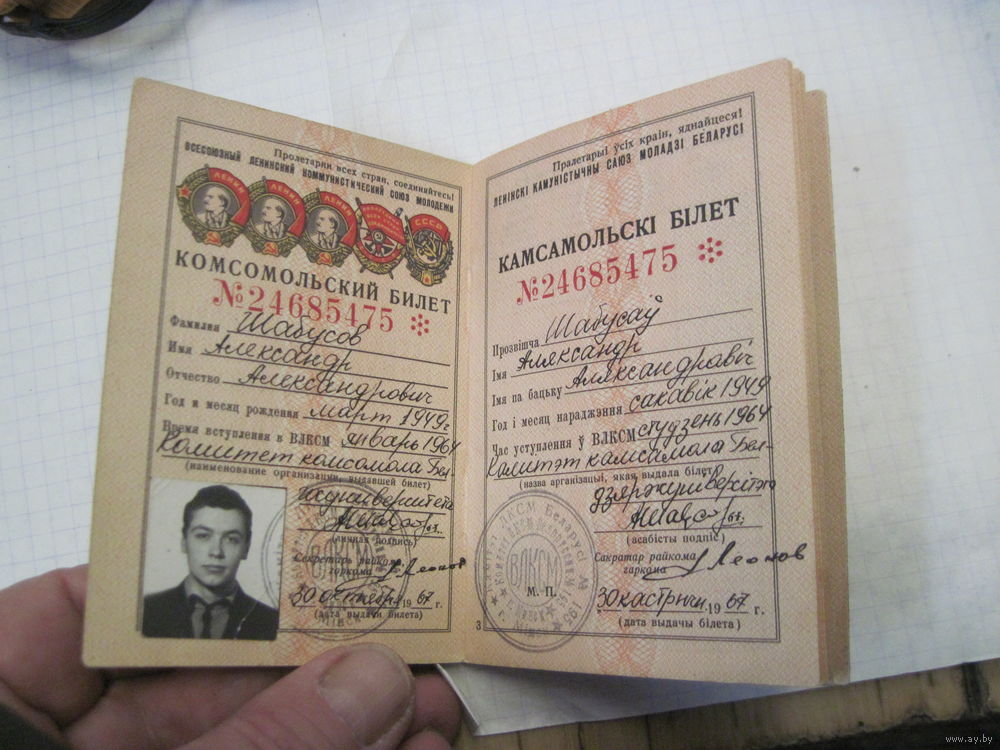 Пролетарии всех стран, соединяйтесь!
ВСЕСОЮЗНЫЙ ЛЕНИНСКИЙ КОММУНИСТИЧЕСКИЙ СОЮЗ МОЛОДЕЖИ
ЛЕНИН
ЛЕНИН
ЛЕНИН
СССР
КОМСОМОЛЬСКИЙ БИЛЕТ
№24685475
Фамилия Шабусов
Имя Александр
Отчество Александрович
Год и месяц рождения март 1949г
Время вступления в ВЛКСМ январь 1964
Комитет комсомола Бел-
(наименование организации, выдавшей билет)
госуниверситета
(личная подпись)
Секретарь райкома
горкома Леонов
30 октября 1967 г.
(дата выдачи билета)
ВЛКСМ
Пралетарыі ўсіх краін, яднайцеся!
ЛЕНІНСКІ КАМУНІСТЫЧНЫ САЮЗ МОЛАДЗІ БЕЛАРУСІ
КАМСАМОЛЬСКІ БІЛЕТ
№24685475
Прозвішча Шабусаў
Імя Аляксандр
Імя па бацьку Аляксандравіч
Год і месяц нараджэння сакавік 1949
Час уступлення ў ВЛКСМ студзень 1964
Камітэт камсамола Бел-
(назва арганізацыі, якая выдала білет)
дзяржуніверсітэта
(асабісты подпіс)
Сакратар райкома
гаркома Леонов
М. П.
30 кастрычн. 1967 г.
(дата выдачы білета)
ВЛКСМ
3
www.ay.by